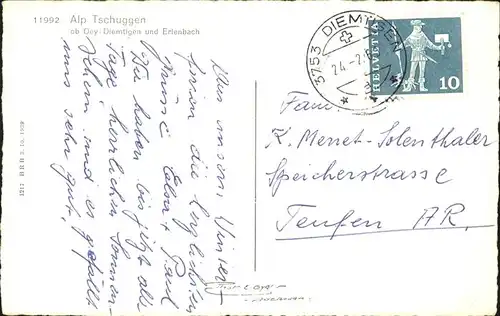 11992 Alp Tschuggen
ob Oey-Diemtigen und Erlenbach
Aus unsern Winter-
ferien die herzlichsten
Grüsse Elsa + Paul
Wir haben bis jetzt alle
Tage herrlichen Sonnen-
schein und es gefällt
uns sehr gut.
3753 DIEMTIGEN
24.-2.
HELVETIA
10
Fam.
K. Menet-Solenthaler
Speicherstrasse
Teufen AR.